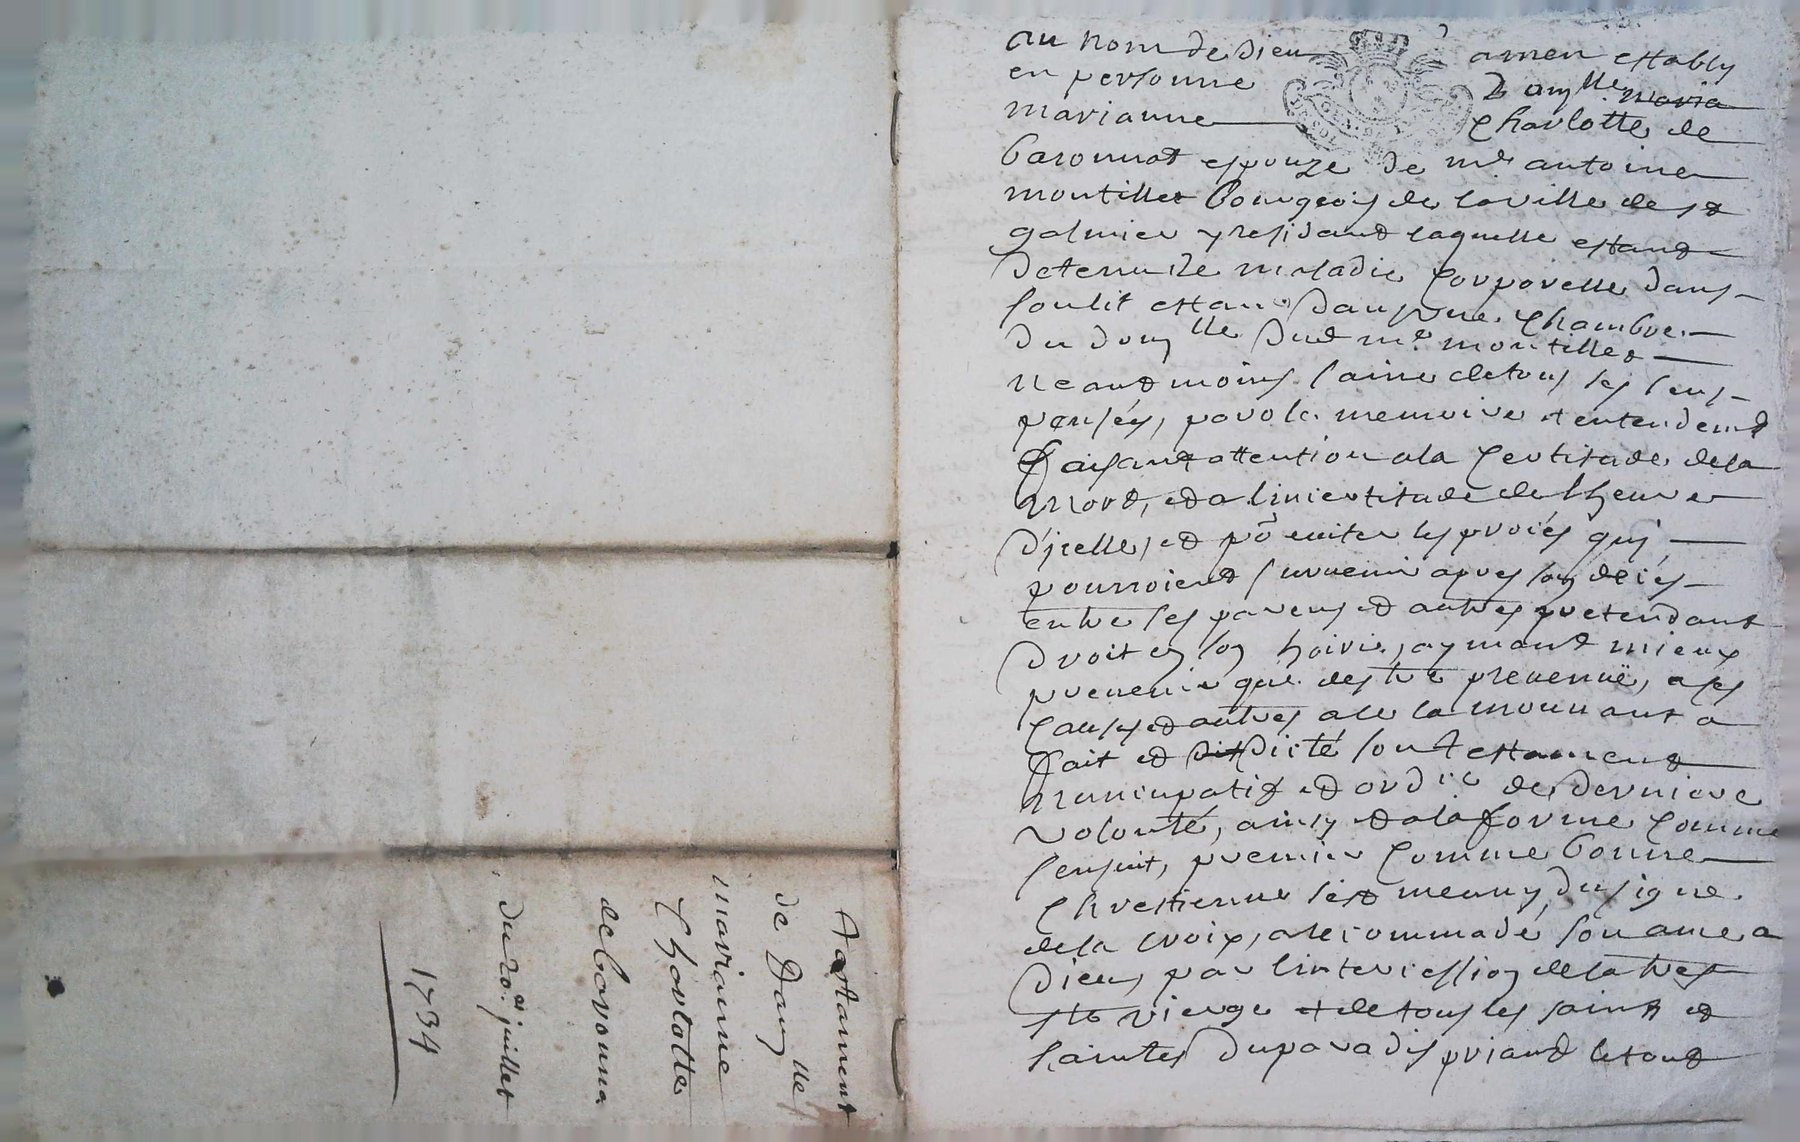 Testament
de Dam^lle
marianne
Charlotte
de baronna
du 20.^e juillet
1734
au nom de Dieu amen estably
en personne Dam^lle maria
marianne Charlotte de
baronnat espouze de m^r antoine
montillet bourgeois de la ville de s^t
galmier y residant laquelle estant
detenue de maladie Corporelle dans
son lit estant dans une chambre
du dom^lle dud m^r montillet
neantmoins saine de tous ses sens
pensées, parole memoire et entendemt
faisant attention a la Certitude de la
mort, et a lincertitude de lheure
d'jcelle, et po^r eviter les proiés qui
pourroient survenir apres son deiés
entre ses parens et autres pretendant
droit en son hoirie, aymant mieux
prevenir que destre prevenuë, a ses
Causes et autres a ce la mouuant a
fait et dit dicté son testament
nuncupatif et ord^re de derniere
volonté, ainsy et a la forme Comme
sensuit, premier Comme bonne
Chrestienne sest meuny du signe
de la croix, a recommadé son ame a
Dieu, par lintercession de la tres
ste vierge et de tous les saints et
saintes du paradis priant le tout